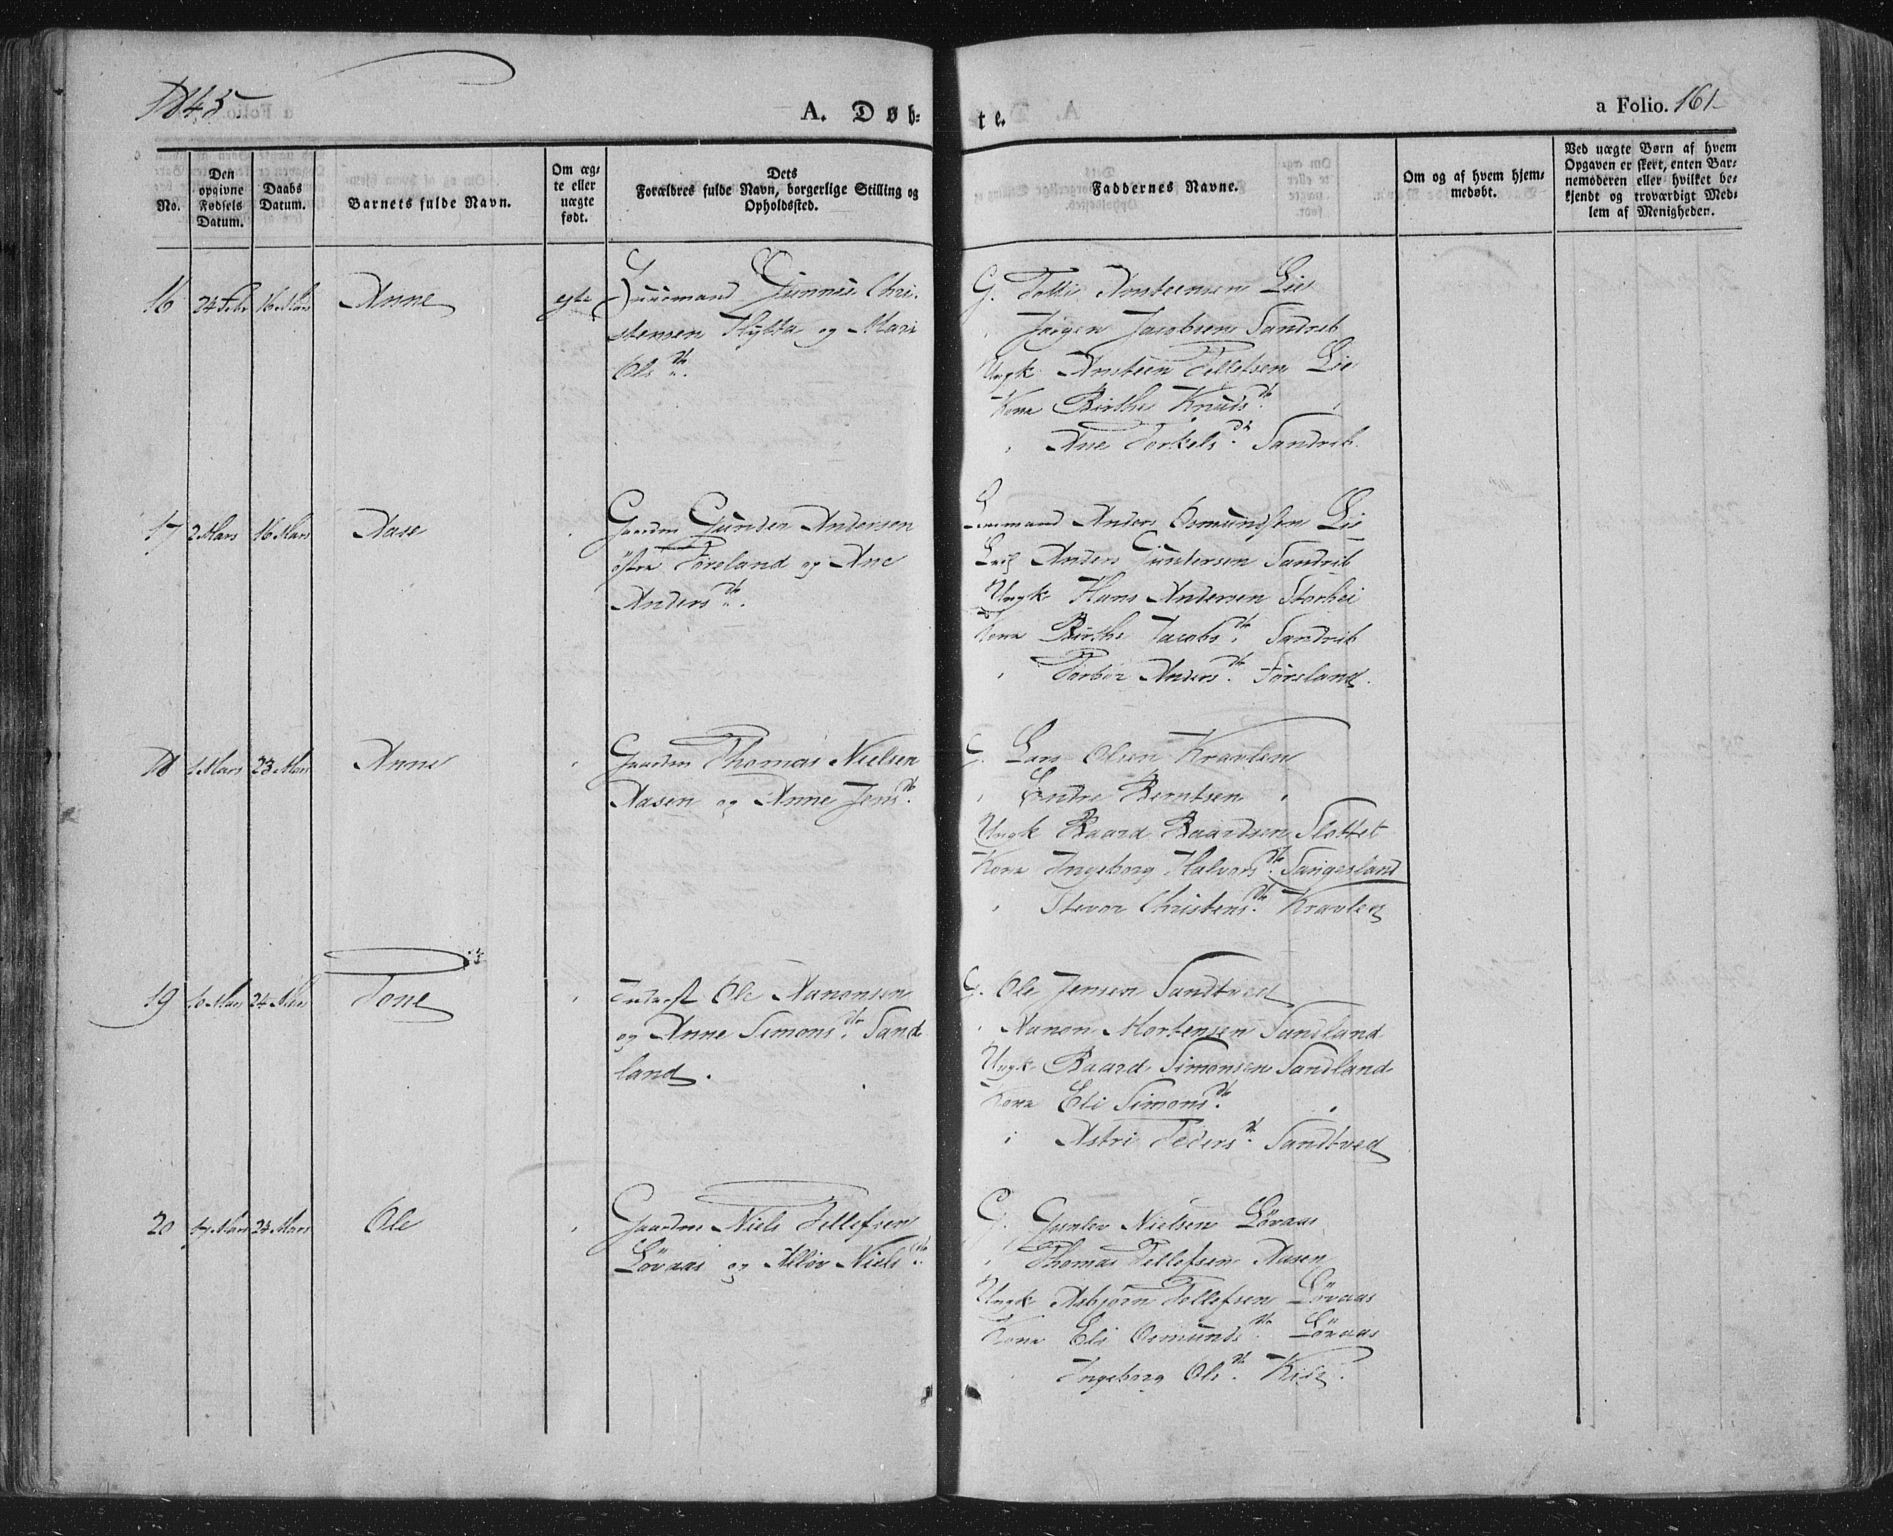 1845
A. Døb-
te.
a Folio. 161
No.
Den opgivne Fødsels Datum.
Daabs Datum.
Barnets fulde Navn.
Om ægte eller uægte født.
Dets Forældres fulde Navn, borgerlige Stilling og Opholdssted.
Faddernes Navne.
Om og af hvem hjemmedøbt.
Ved uægte Børn af hvem Opgaven er skeet, enten Barnemoderen eller hvilket bekjendt og troværdigt Medlem af Menigheden.
16 24 Febr 16 Mars Anne egte Huusmand Gunnar Chri-
stensen Hytta og Mari
Ols dtr.
G. Tollef Ansteensen Lie
Jørgen Jacobsen Sandrib
Ungk Ansteen Tellefsen Lie
Kone Birthe Knuds dtr.
Ane Torkels dtr. Sandrib
17 2 Mars 16 Mars Aase Gaardm Gunder Andersen
østre Føreland og Ane
Anders dtr.
Anders Osmundsen Lie
Anders Gundersen Sandrib
Ungk Hans Andersen Storhei
Kone Birthe Jacobs dtr. Sandrib
Torbor Anders dtr. Føreland.
18 1 Mars 23 Mars Anne Gaardm Thomas Nielsen
Aasen og Anne Jens dtr.
G. Lars Olsen Kravlen
Endre Berntsen
Ungk Baard Baardsen Slottet
Kone Ingeborg Halvors dtr. Sangesland
Stevor Christens dtr. Kravlen
19 10 Mars 24 Mars Tone Ole Aanonsen
og Anne Simons dtr. Sand
land.
G. Ole Jensen Sandtved
Aanon Mortensen Sandland
Ungk Baard Simonsen Sandland
Kone Eli Simons dtr.
Astri Peders dtr. Sandtved
20 17 Mars 24 Mars Ole Gaardm Niels Tellefsen
Løvaas og Alløv Niels dtr.
G. Gunlev Nielsen Løvaas
Thomas Tellefsen Aasen
Ungk Asbjørn Tellefsen Løvaas
Kone Eli Osmunds dtr. Løvaas
Ingeborg Ols dtr. Kile.